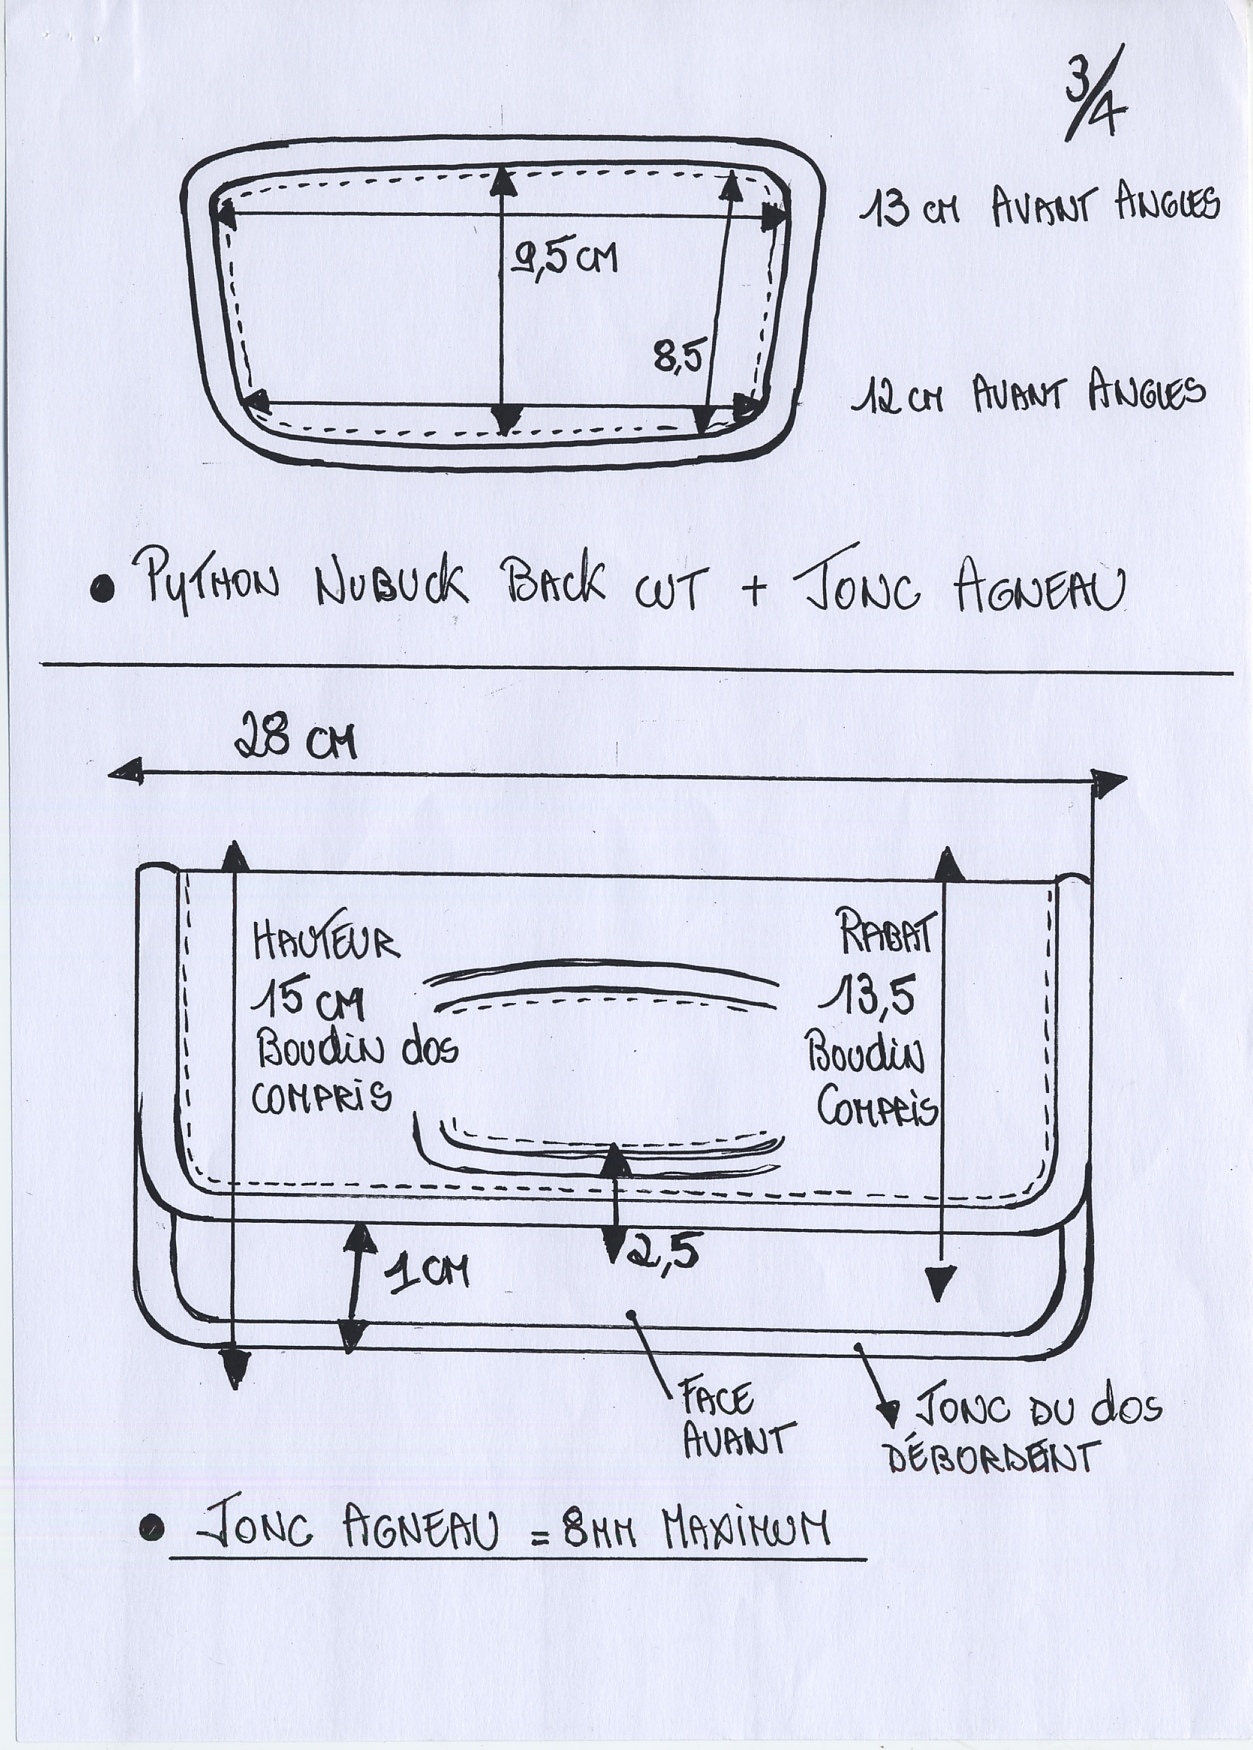 3/4
13 CM AVANT ANGLES
9,5 CM
8,5
12 CM AVANT ANGLES
• PYTHON NUBUCK BACK CUT + JONC AGNEAU
28 CM
HAUTEUR
15 CM
BOUDIN dos
COMPRIS
RABAT
13,5
BOUDIN
COMPRIS
2,5
1 CM
FACE
AVANT
JONC DU dos
DÉBORDENT
• JONC AGNEAU = 8MM MAXIMUM